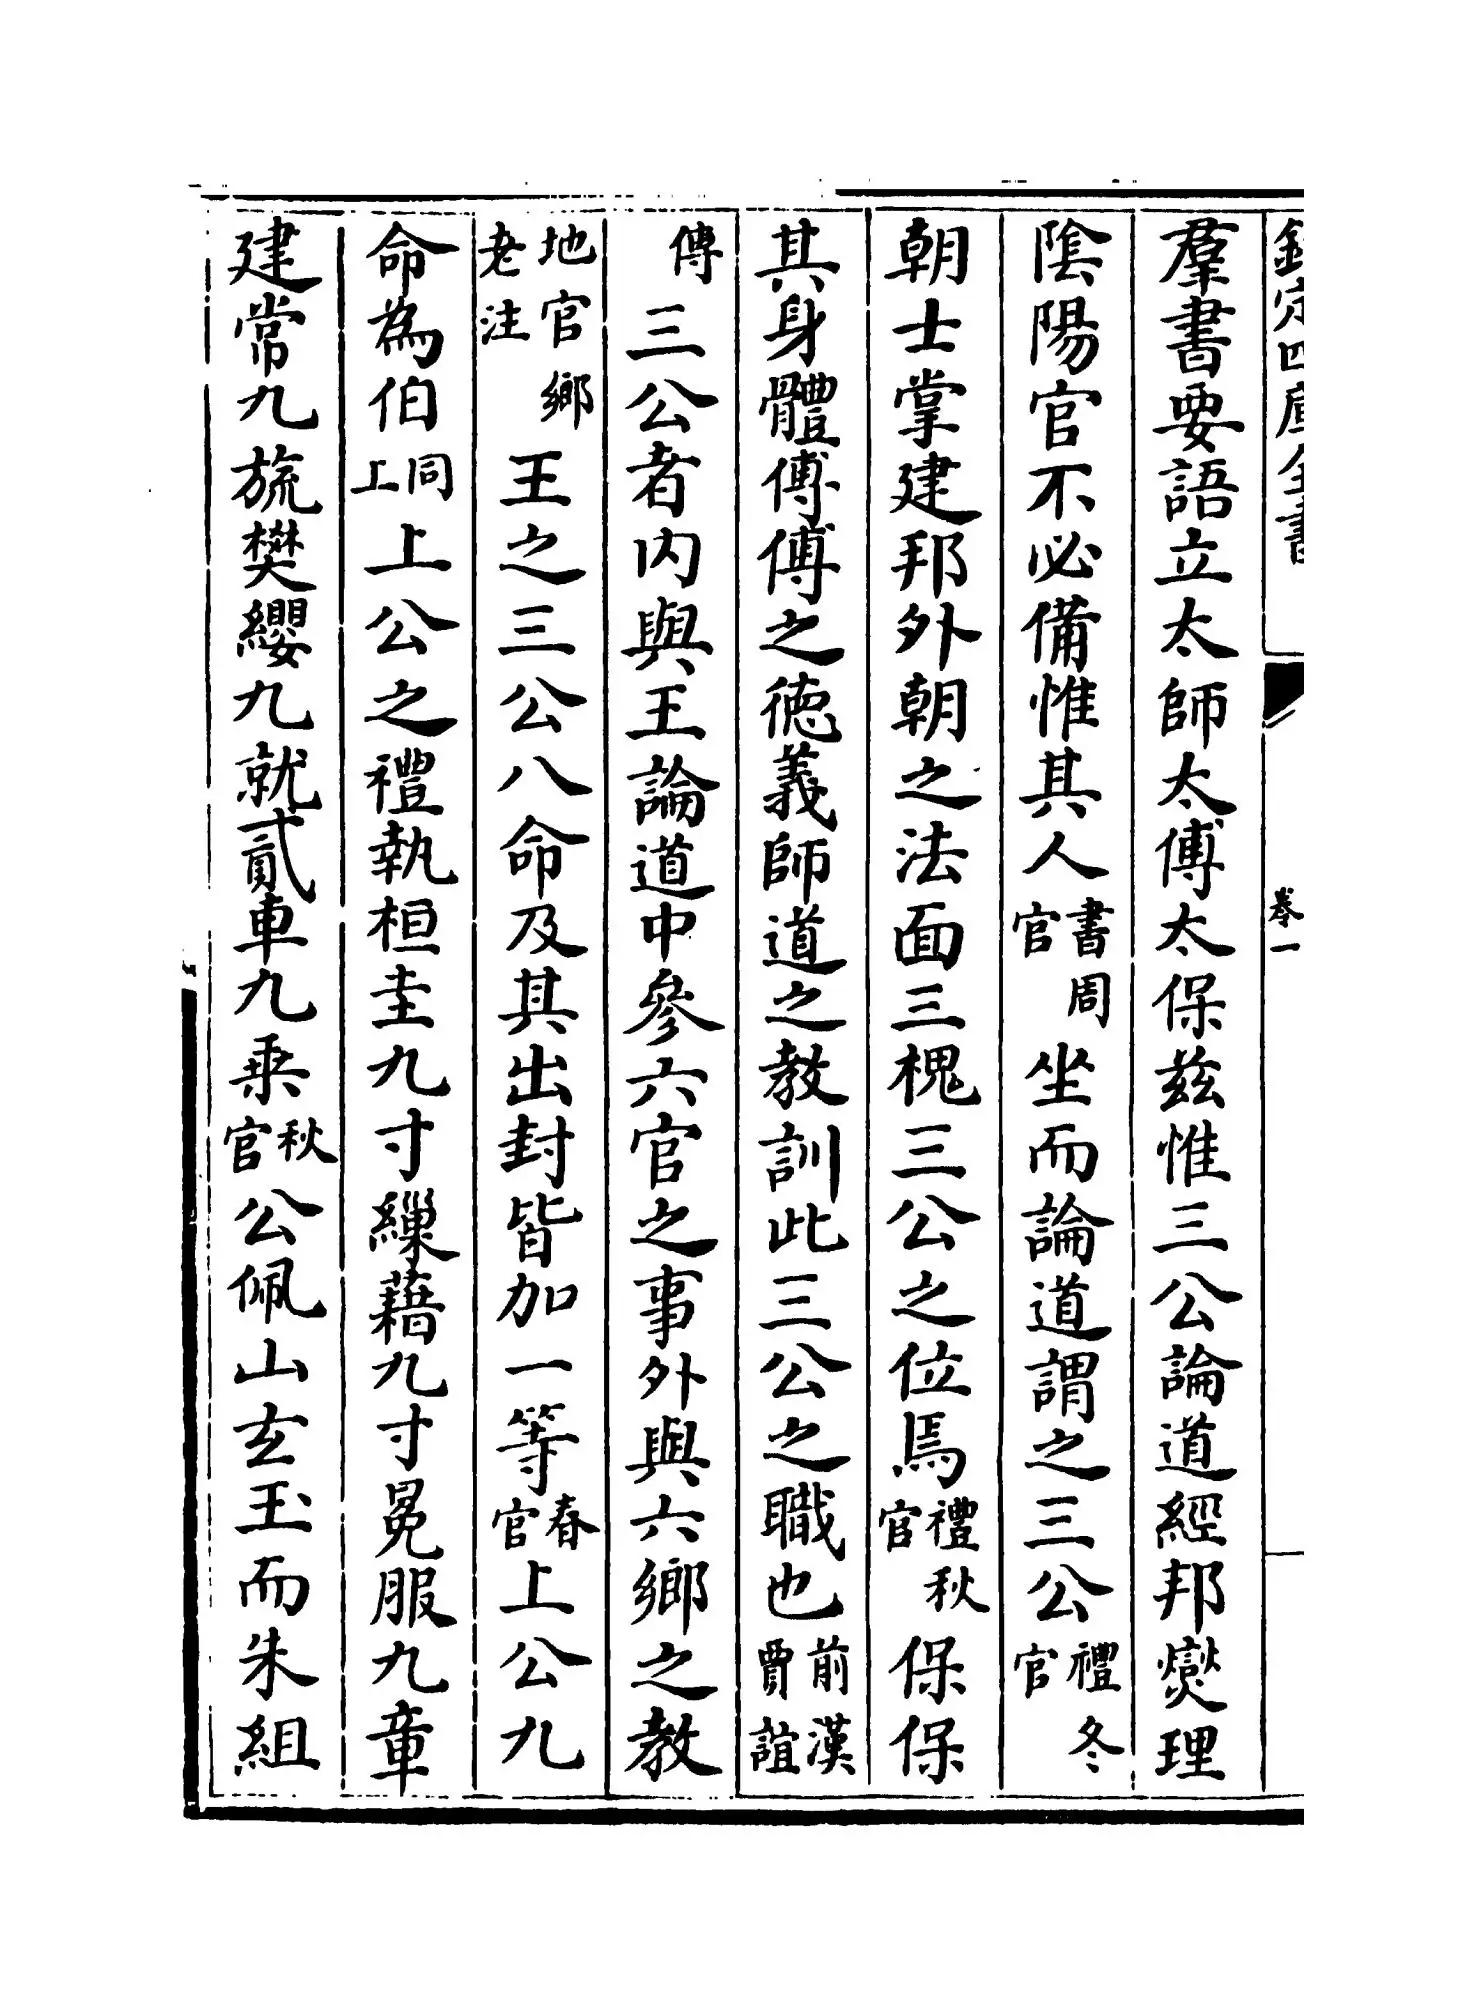 欽定四庫全書
卷一
羣書要語立太師太傅太保兹惟三公論道經邦燮理
陰陽官不必備惟其人書周官坐而論道謂之三公禮冬官
朝士掌建邦外朝之法面三槐三公之位焉禮秋官保保
其身體傅傅之徳義師道之教訓此三公之職也前漢賈誼
傳三公者内與王論道中參六官之事外與六鄉之教
地官鄉老注王之三公八命及其出封皆加一等春官上公九
命為伯同上上公之禮執桓圭九寸繅藉九寸冕服九章
建常九旒樊纓九就貳車九乗秋官公佩山玄玉而朱組